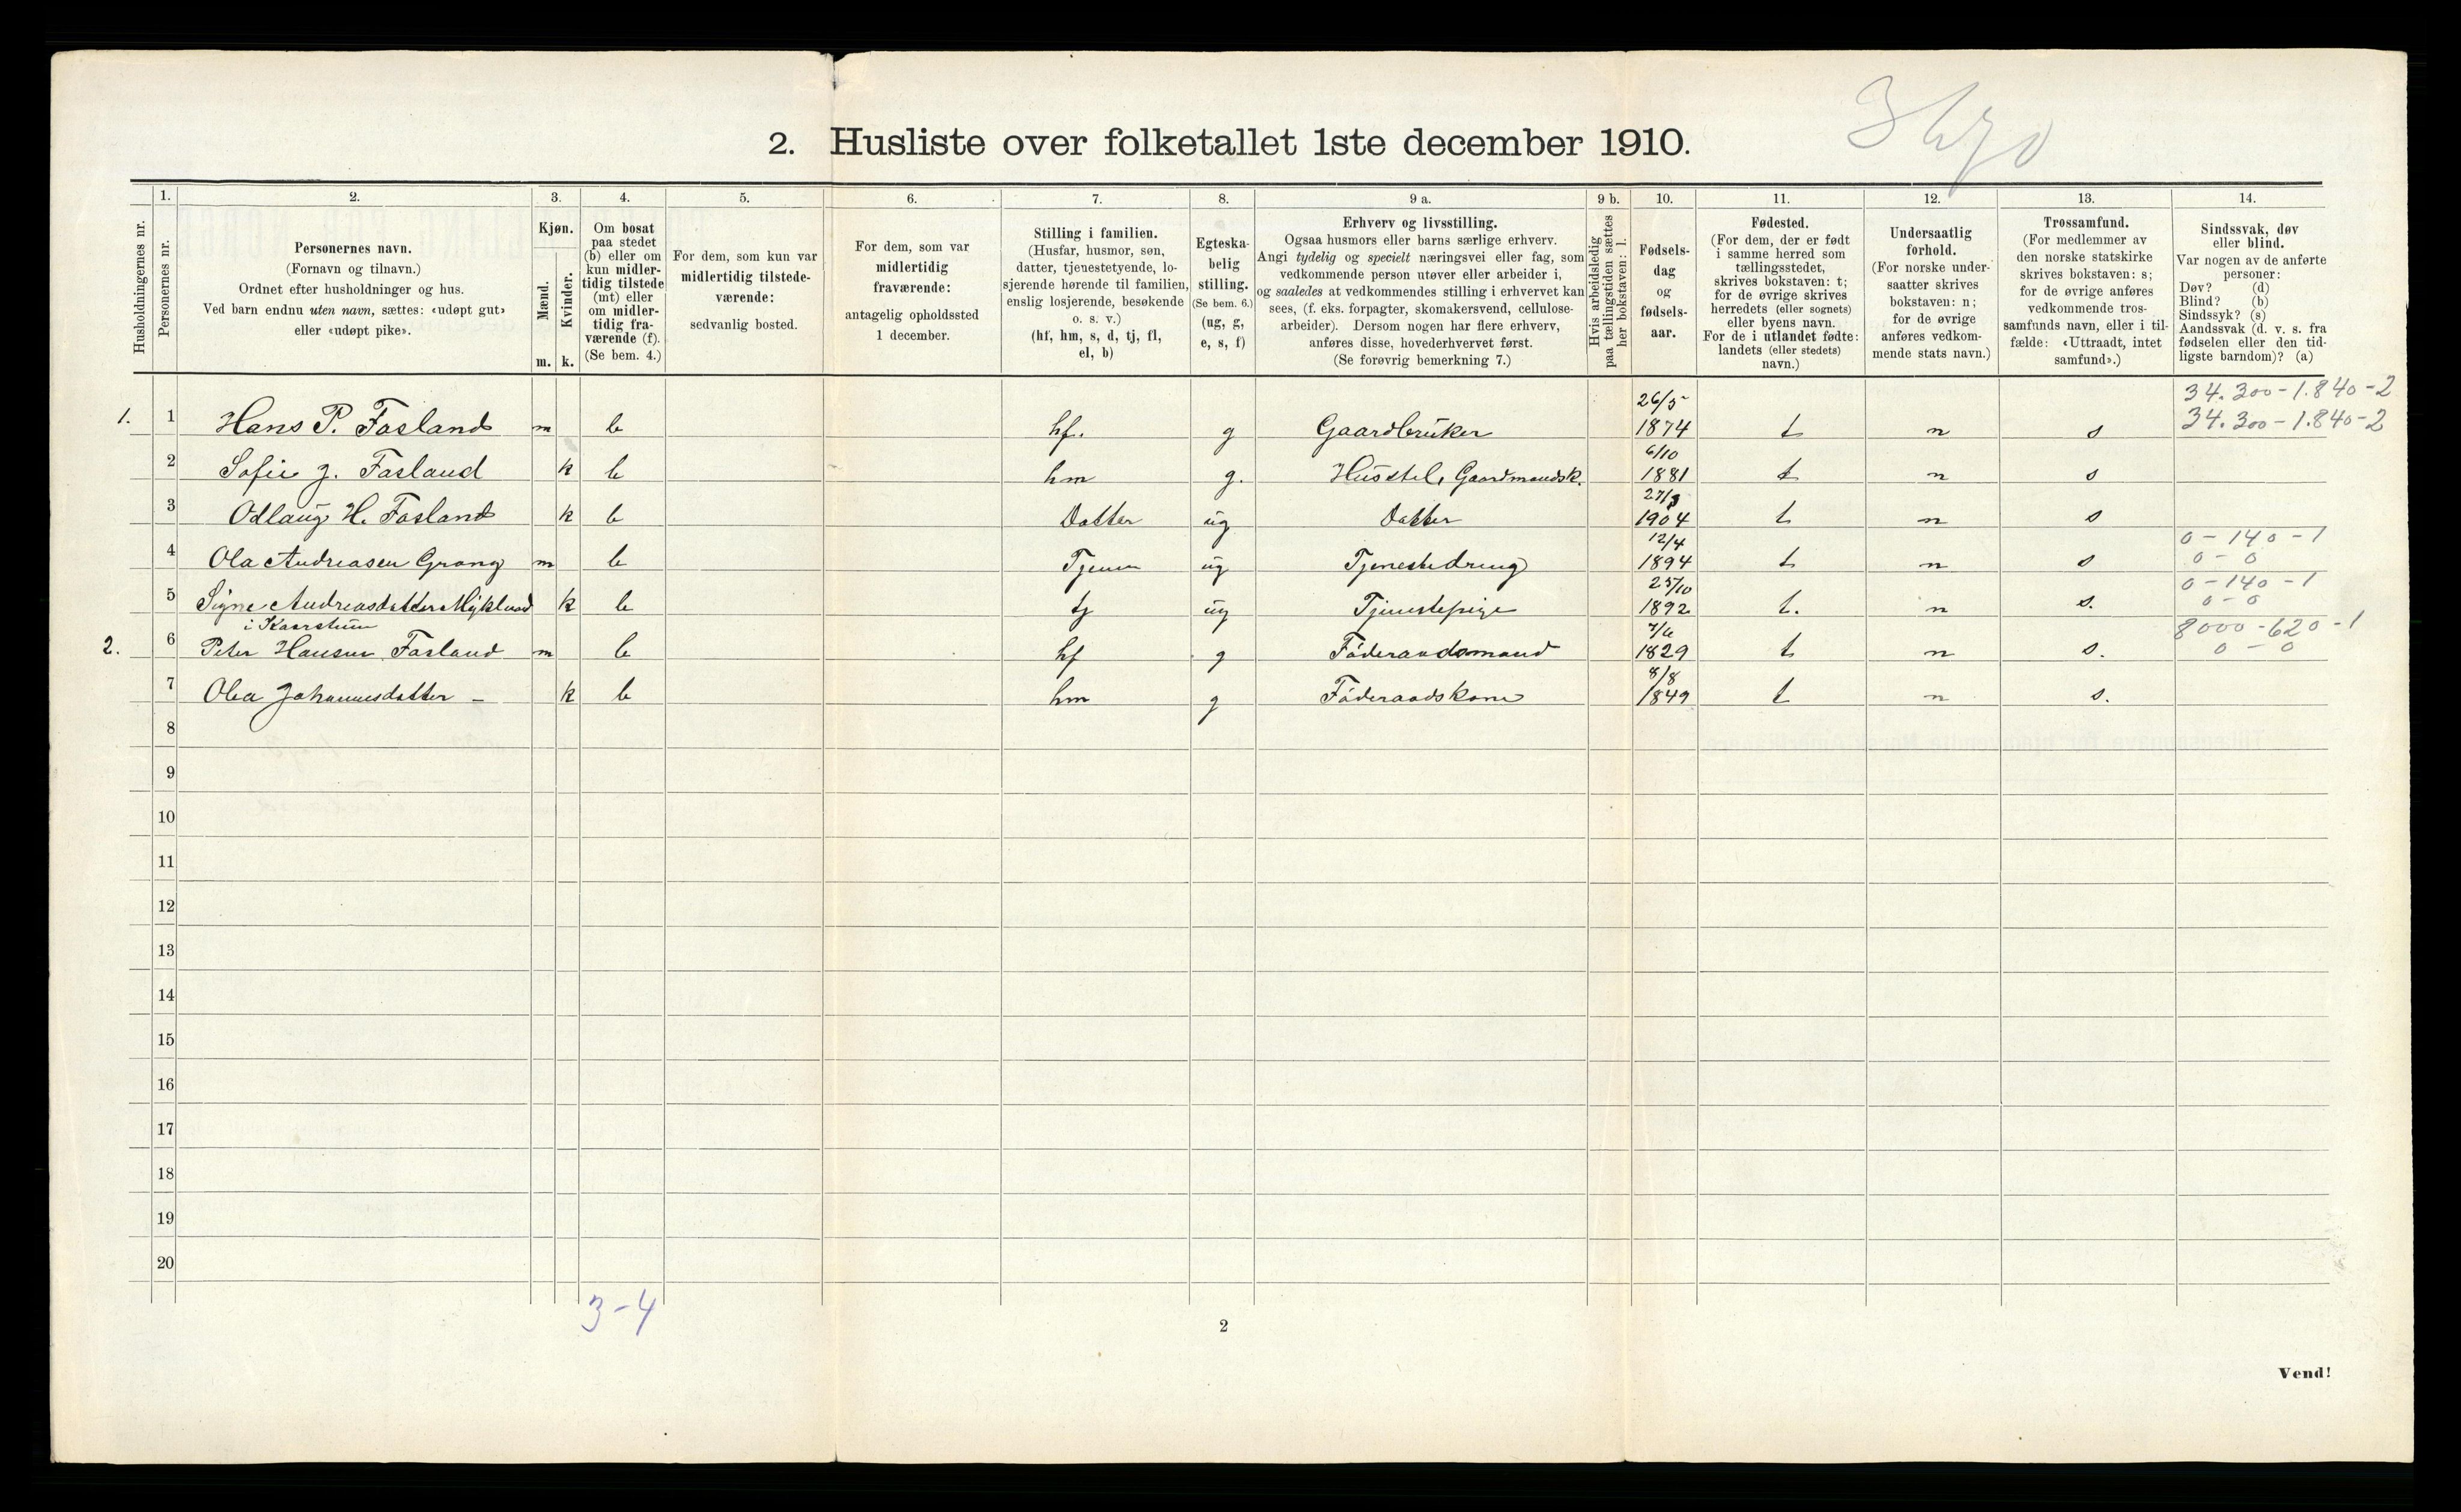 2. Husliste over folketallet 1ste december 1910.
Husholdningernes nr.
1. Personernes nr.
2. Personernes navn. (Fornavn og tilnavn.) Ordnet efter husholdninger og hus. Ved barn endnu uten navn, sættes: «udøpt gut» eller «udøpt pike».
3. Kjøn. Mænd. m. Kvinder. k.
4. Om bosat paa stedet (b) eller om kun midlertidig tilstede (mt) eller om midlertidig fraværende (f). (Se bem. 4.)
5. For dem, som kun var midlertidig tilstedeværende: sedvanlig bosted.
6. For dem, som var midlertidig fraværende: antagelig opholdssted 1 december.
7. Stilling i familien. (Husfar, husmor, søn, datter, tjenestetyende, losjerende hørende til familien, enslig losjerende, besøkende o. s. v.) (hf, hm, s, d, tj, fl, el, b)
8. Egteskabelig stilling. (Se bem. 6.) (ug, g, e, s, f)
9 a. Erhverv og livsstilling. Ogsaa husmors eller barns særlige erhverv. Angi tydelig og specielt næringsvei eller fag, som vedkommende person utøver eller arbeider i, og saaledes at vedkommendes stilling i erhvervet kan sees, (f. eks. forpagter, skomakersvend, cellulosearbeider). Dersom nogen har flere erhverv, anføres disse, hovederhvervet først. (Se forøvrig bemerkning 7.)
9 b. Hvis arbeidsledig paa tællingstiden sættes her bokstaven: l.
10. Fødselsdag og fødselsaar.
11. Fødested. (For dem, der er født i samme herred som tællingsstedet, skrives bokstaven: t; for de øvrige skrives herredets (eller sognets) eller byens navn. For de i utlandet fødte: landets (eller stedets) navn.)
12. Undersaatlig forhold. (For norske undersaatter skrives bokstaven: n; for de øvrige anføres vedkommende stats navn.)
13. Trossamfund. (For medlemmer av den norske statskirke skrives bokstaven: s; for de øvrige anføres vedkommende trossamfunds navn, eller i tilfælde: «Uttraadt, intet samfund».)
14. Sindssvak, døv eller blind. Var nogen av de anførte personer: Døv? (d) Blind? (b) Sindssyk? (s) Aandssvak (d. v. s. fra fødselen eller den tidligste barndom)? (a)
1. 1 Hans P. Fasland m b hf. g Gaardbruker 26/5 1874 t n s 34.300-1.840-2 34.300-1.840-2
2 Sofie J. Fasland k b hm g. Husstel, Gaardmandsk. 6/10 1881 t n s
3 Odlaug H. Fasland k b Datter ug Datter 27/3 1904 t n s
4 Ola Andreasen Grong m b Tjener ug Tjenestedreng 12/4 1894 t n s 0-140-1 0-0
5 Signe Andreasdatter Mykland k b tj ug Tjenestepige 25/10 1892 t. n s. 0-140-1 0-0
i Kaarstuen
2. 6 Peter Hansen Fasland m b hf g Föderaadsmand 7/6 1829 t n s. 8000-620-1 0-0
7 Olea Johannesdatter - k b hm g Föderaadskone 8/8 1849 t n s.
8
9
10
11
12
13
14
15
16
17
18
19
20
3-4
2
Vend!